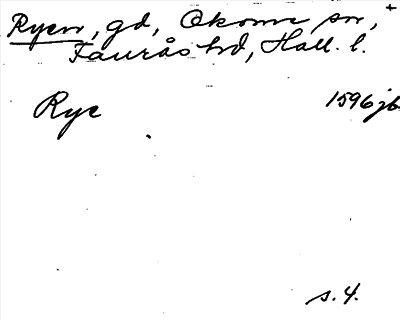 Ryen, gd, Okome sn, +
Faurås hd, Hall. l.
Rye 1596 jb.
s. 4.